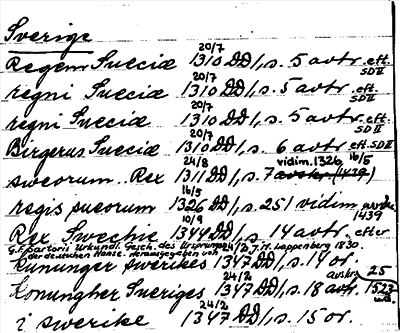 Sverige
20/7
Regem Sueciæ 1310 DD 1, s. 5 avtr. eft. SD II
20/7
regni Sueciæ 1310 DD 1, s. 5 avtr. eft. SD II
20/7
regni Sueciæ 1310 DD 1, s. 5 avtr. eft. SD II
20/7
Birgerus Sueciæ 1310 DD 1, s. 6 avtr. eft. SD II
24/8 vidim. 1326 16/5
sweorum Rex 1311 DD 1, s. 7 (1439)
16/5
regis sueorum 1326 DD 1, s. 251 vidim 1439
10/9
Rex Swechie 1344 DD 1, s. 14 avtr. efter
G.F. Sartoris Urkundl. Gesch. des Ursprunges der deutschen Hanse. Herausgegeben von J.M. Lappenberg 1830.
24/2
Kununger swerikes 1347 DD 1, s. 14 or.
24/2 avskr. 25
Konungher Sveriges 1347 DD 1, s. 18 avtr. 1523
24/2
i swerike 1347 DD 1, s. 15 or.